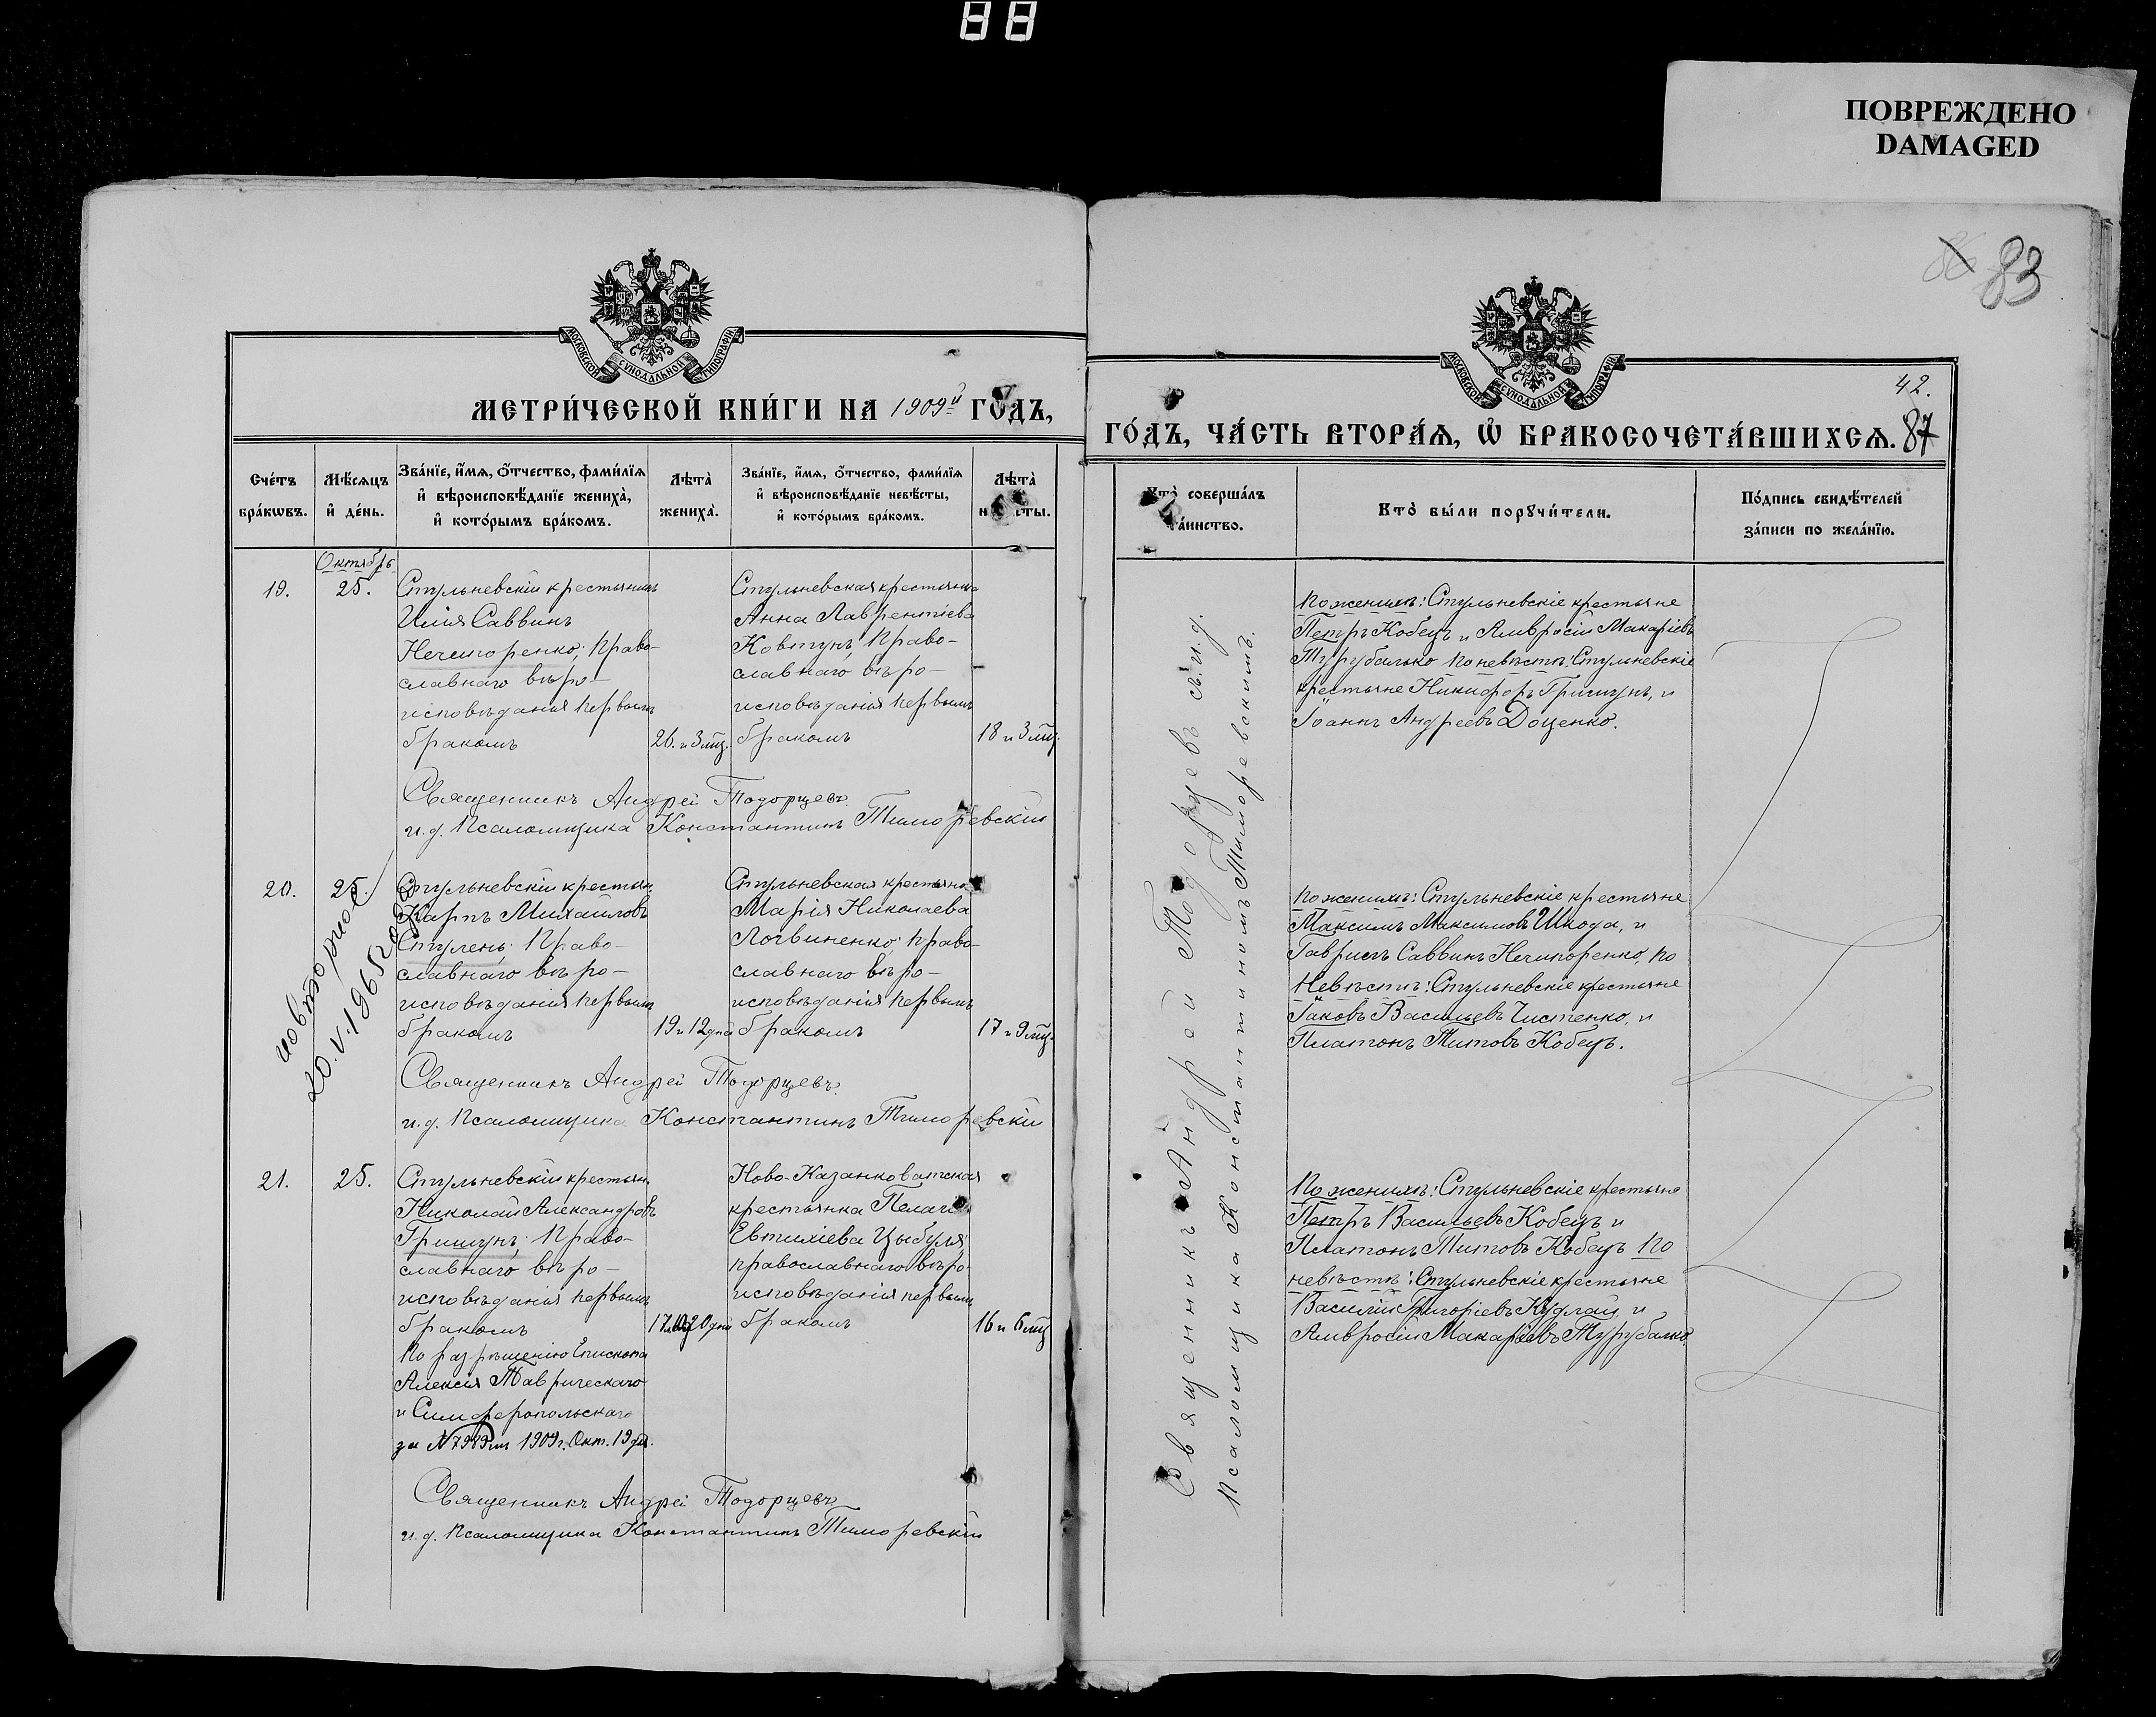 88
ПОВРЕЖДЕНО
DAMAGED
86 83
МОСКОВСКОЙ СУНОДАЛЬНОЙ ТИПОГРАФІИ
МЕТРИ́ЧЕСКОЙ КНИ́ГИ НА 1909й ГОДЪ,
Сче́тъ бра́кωвъ.
Мѣ́сяцъ и҆ де́нь.
Зва́нїе, и҆́мя, ѻ҆́тчество, фами́лїя
и҆ вѣроисповѣ́данїе жениха̀,
и҆ кото́рымъ бра́комъ.
Лѣта̀ жениха̀.
Зва́нїе, и҆́мя, ѻ҆́тчество, фами́лїя
и҆ вѣроисповѣ́данїе невѣ́сты,
и҆ кото́рымъ бра́комъ.
Лѣта̀
Октябрь
19.
25.
Стульневскій крестьянинъ
Илія Саввинъ
Нечипоренко; Право-
славнаго вѣро-
исповѣданія первымъ
бракомъ
26. и 3 мѣц.
Стульневская крестьянка
Анна Лаврентіева
Ковтунъ, Право-
славнаго вѣро-
исповѣданія первымъ
бракомъ
18 и 3 мѣц.
Священникъ Андрей Тодорцевъ.
и. д. Псаломщика Константинъ Тиморевскій
20.
25.
повторное
20.V.1965
Стульневскій крестьян.
Карпъ Михайловъ
Стулень; Право-
славнаго вѣро-
исповѣданія первымъ
бракомъ
19 и 12 дней
Стульневская крестьянка
Марія Николаева
Логвиненко; Право-
славнаго вѣро-
исповѣданія первымъ
бракомъ
17 и 9 мѣц.
Священникъ Андрей Тодорцевъ.
и. д. Псаломщика Константинъ Тиморевскій
21.
25.
Стульневскій крестьян.
Николай Александровъ
Гришунъ; Право-
славнаго вѣро-
исповѣданія первымъ
бракомъ
По разрѣшенію Епископа
Алексія Таврическаго
и Симферопольскаго
1909 г. Окт. 19 дня.
Ново-Казанковатская
крестьянка Пелагія
Евтихіева Цыбуля
православнаго вѣро-
исповѣданія первымъ
бракомъ
16 и 6 мѣц
Священникъ Андрей Тодорцевъ
и. д. Псаломщика Константинъ Тиморевскій
МОСКОВСКОЙ СУНОДАЛЬНОЙ ТИПОГРАФІИ
42.
ГО́ДЪ, ЧА́СТЬ ВТОРА́Я, Ѽ БРАКОСОЧЕТА́ВШИХСЯ. 87
Кто̀ соверша́лъ та́инство.
Кто̀ бы́ли порꙋчи́тели.
По́дпись свидѣ́телей
за́писи по жела́нїю.
Священникъ Андрей Тодорцевъ съ и. д.
Псаломщика Константиномъ Тиморевскимъ.
По женихѣ: Стульневскіе крестьяне
Петръ Кобецъ и Амвросій Макаріевъ
Турубалько По невѣстѣ: Стульневскіе
крестьяне Никифоръ Гришунъ, и
Іоаннъ Андреевъ Доценко.
По женихѣ: Стульневскіе крестьяне
Максимъ Максимовъ Шкода, и
Гавріилъ Саввинъ Нечипоренко, По
Невѣстѣ: Стульневскіе крестьяне
Іаковъ Васильевъ Чистенко, и
Платонъ Титовъ Кобецъ.
По женихѣ: Стульневскіе крестьяне
Петръ Васильевъ Кобецъ и
Платонъ Титовъ Кобецъ По
невѣстѣ: Стульневскіе крестьяне
Василій Григоріевъ Кудлай, и
Амвросій Макаріевъ Турубалько.